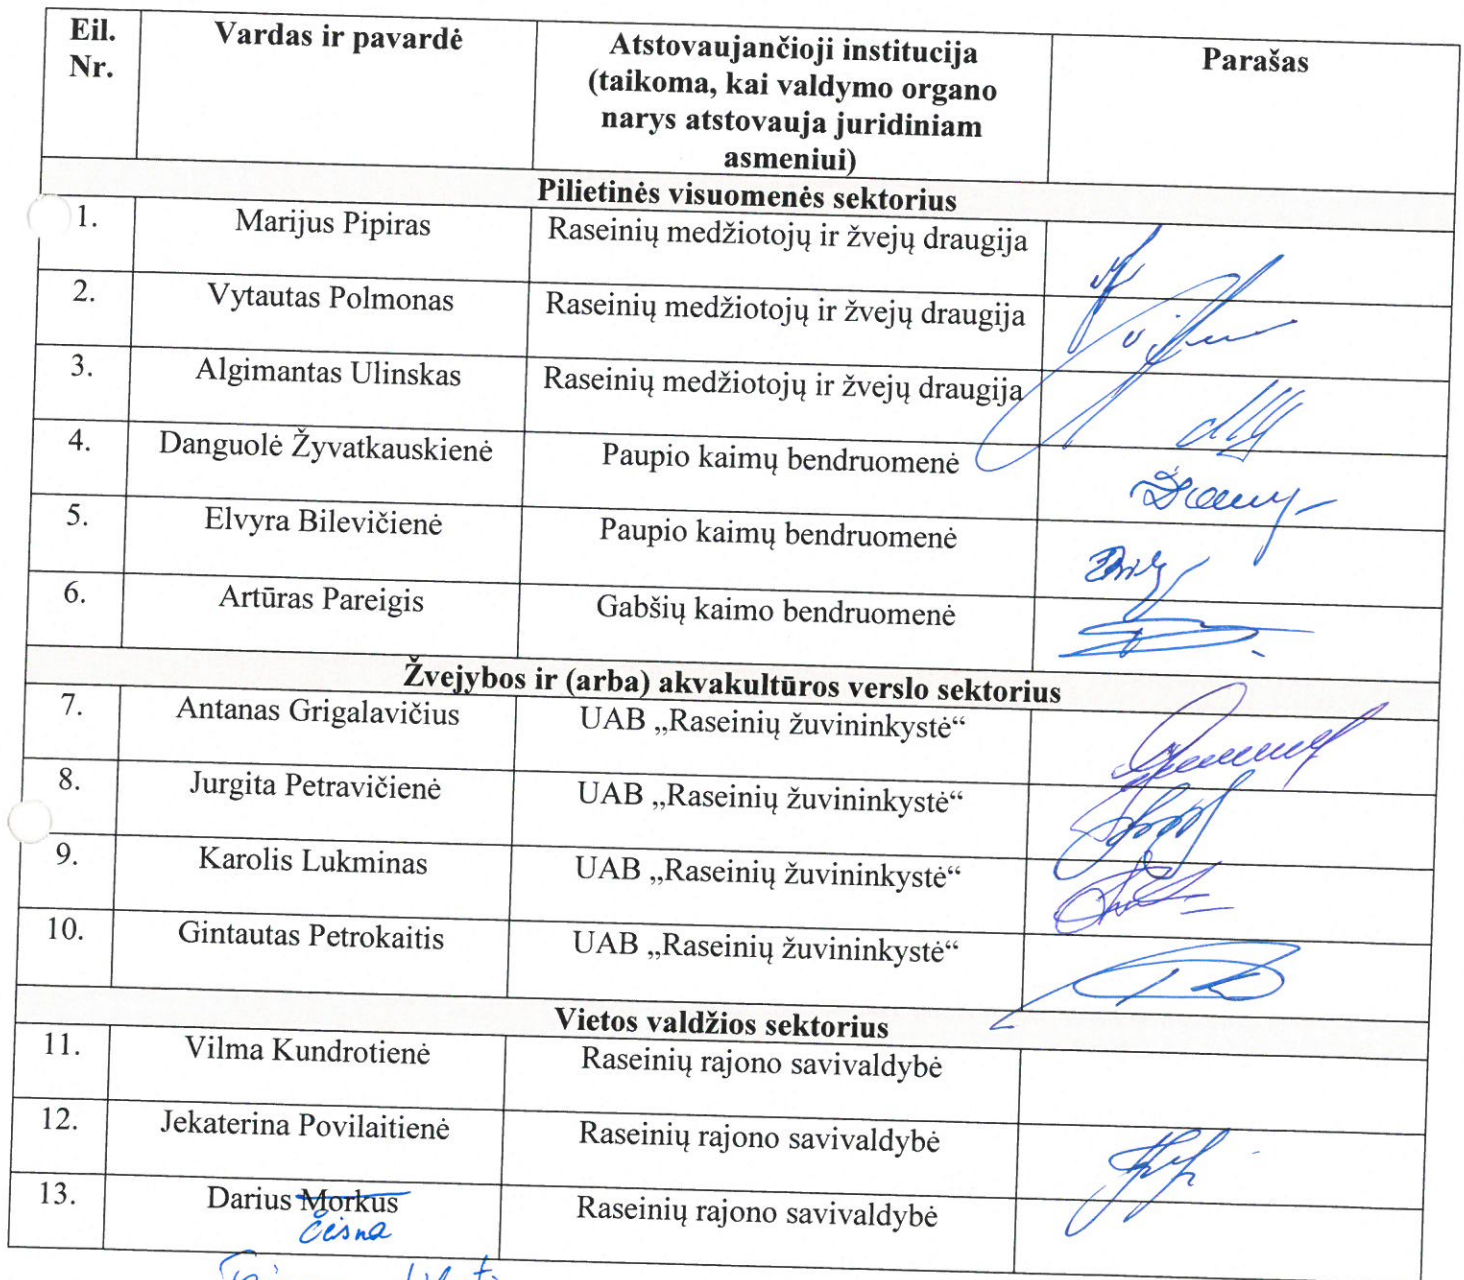 Eil. Nr. Vardas ir pavardė Atstovaujančioji institucija (taikoma, kai valdymo organo narys atstovauja juridiniam asmeniui) Parašas
Pilietinės visuomenės sektorius
1. Marijus Pipiras Raseinių medžiotojų ir žvejų draugija
2. Vytautas Polmonas Raseinių medžiotojų ir žvejų draugija
3. Algimantas Ulinskas Raseinių medžiotojų ir žvejų draugija
4. Danguolė Žyvatkauskienė Paupio kaimų bendruomenė
5. Elvyra Bilevičienė Paupio kaimų bendruomenė
6. Artūras Pareigis Gabšių kaimo bendruomenė
Žvejybos ir (arba) akvakultūros verslo sektorius
7. Antanas Grigalavičius UAB „Raseinių žuvininkystė“
8. Jurgita Petravičienė UAB „Raseinių žuvininkystė“
9. Karolis Lukminas UAB „Raseinių žuvininkystė“
10. Gintautas Petrokaitis UAB „Raseinių žuvininkystė“
Vietos valdžios sektorius
11. Vilma Kundrotienė Raseinių rajono savivaldybė
12. Jekaterina Povilaitienė Raseinių rajono savivaldybė
13. Darius Morkus Raseinių rajono savivaldybė
Česna